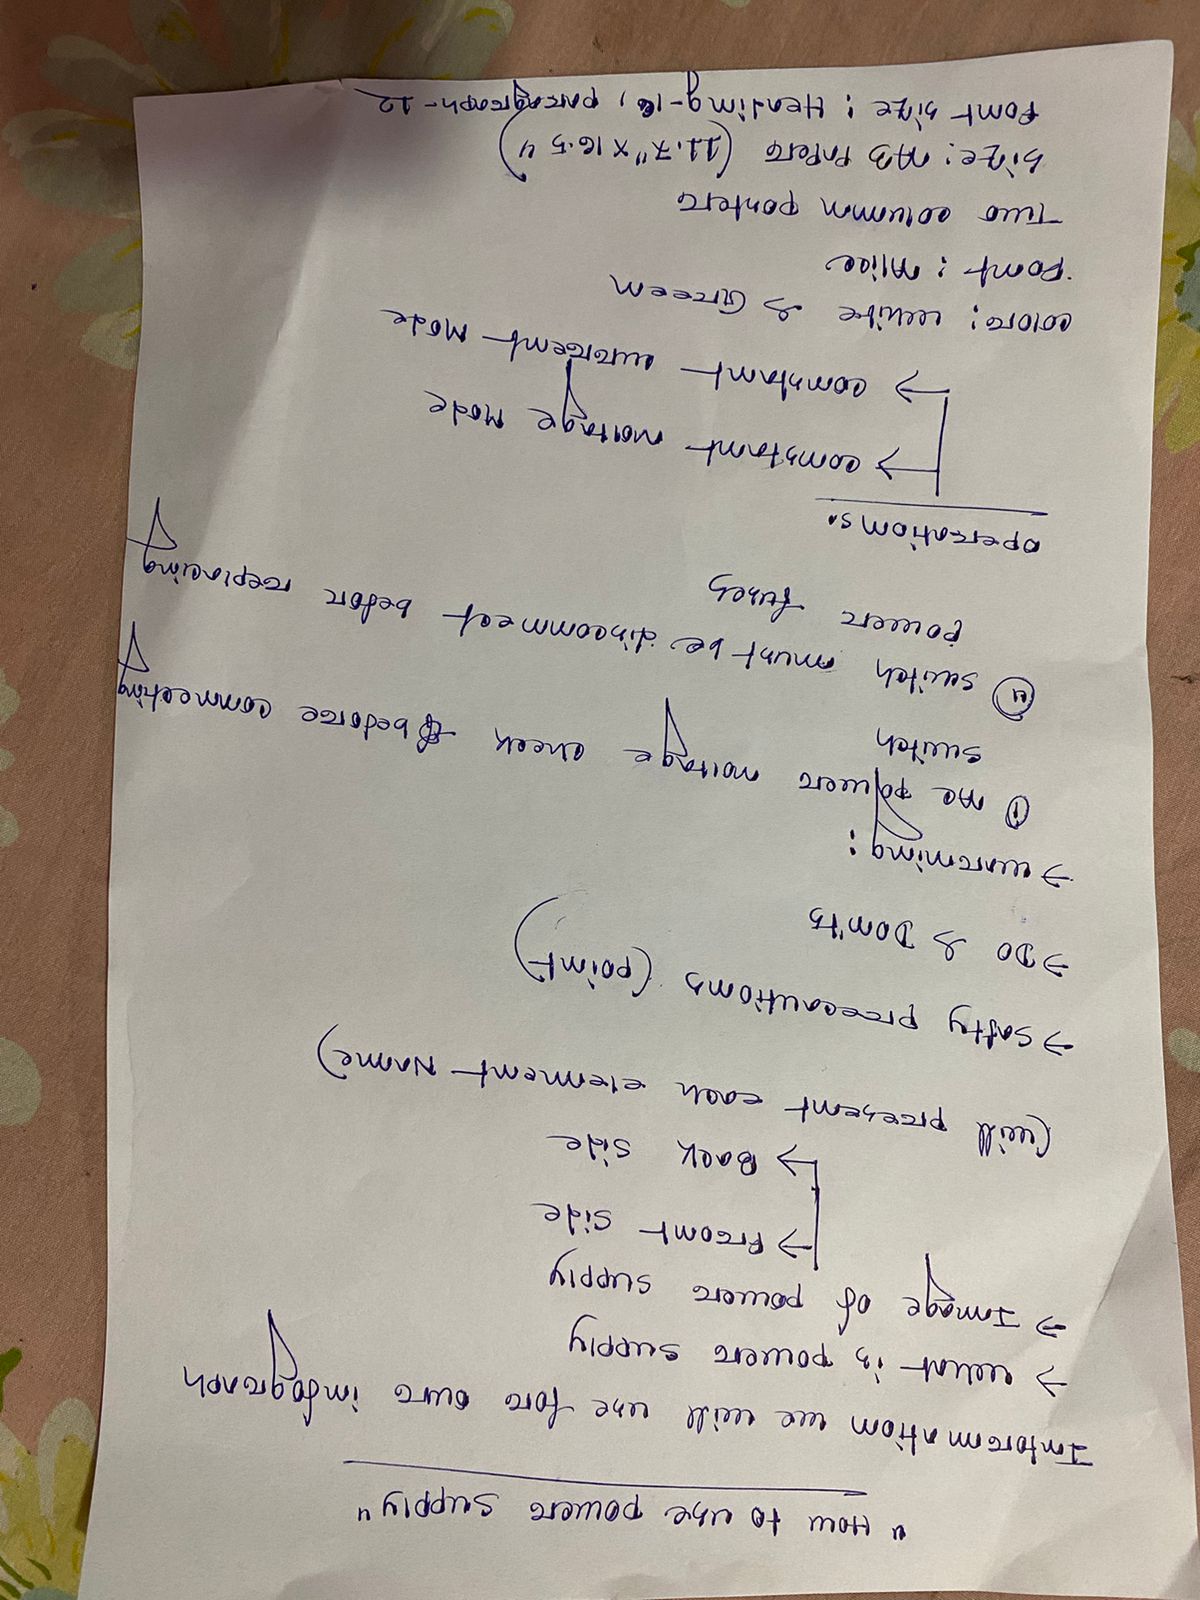 "How to use power supply"
Information we will use for our infograph
→ what is power supply
→ Image of power supply
→ Front side
→ Back side
(will present each element Name)
→ Safty precautions (point)
→ DO & Don'ts
→ warning:
① AC power voltage check before connecting
switch
② switch must be disconnect before replacing
power fuses
Operations:
→ constant voltage Mode
→ constant current Mode
color: white & Green
Font: Alice
Two column
Size: A3 Paper (11.7" x 16.5")
Font size: Heading-16, paragraph-12